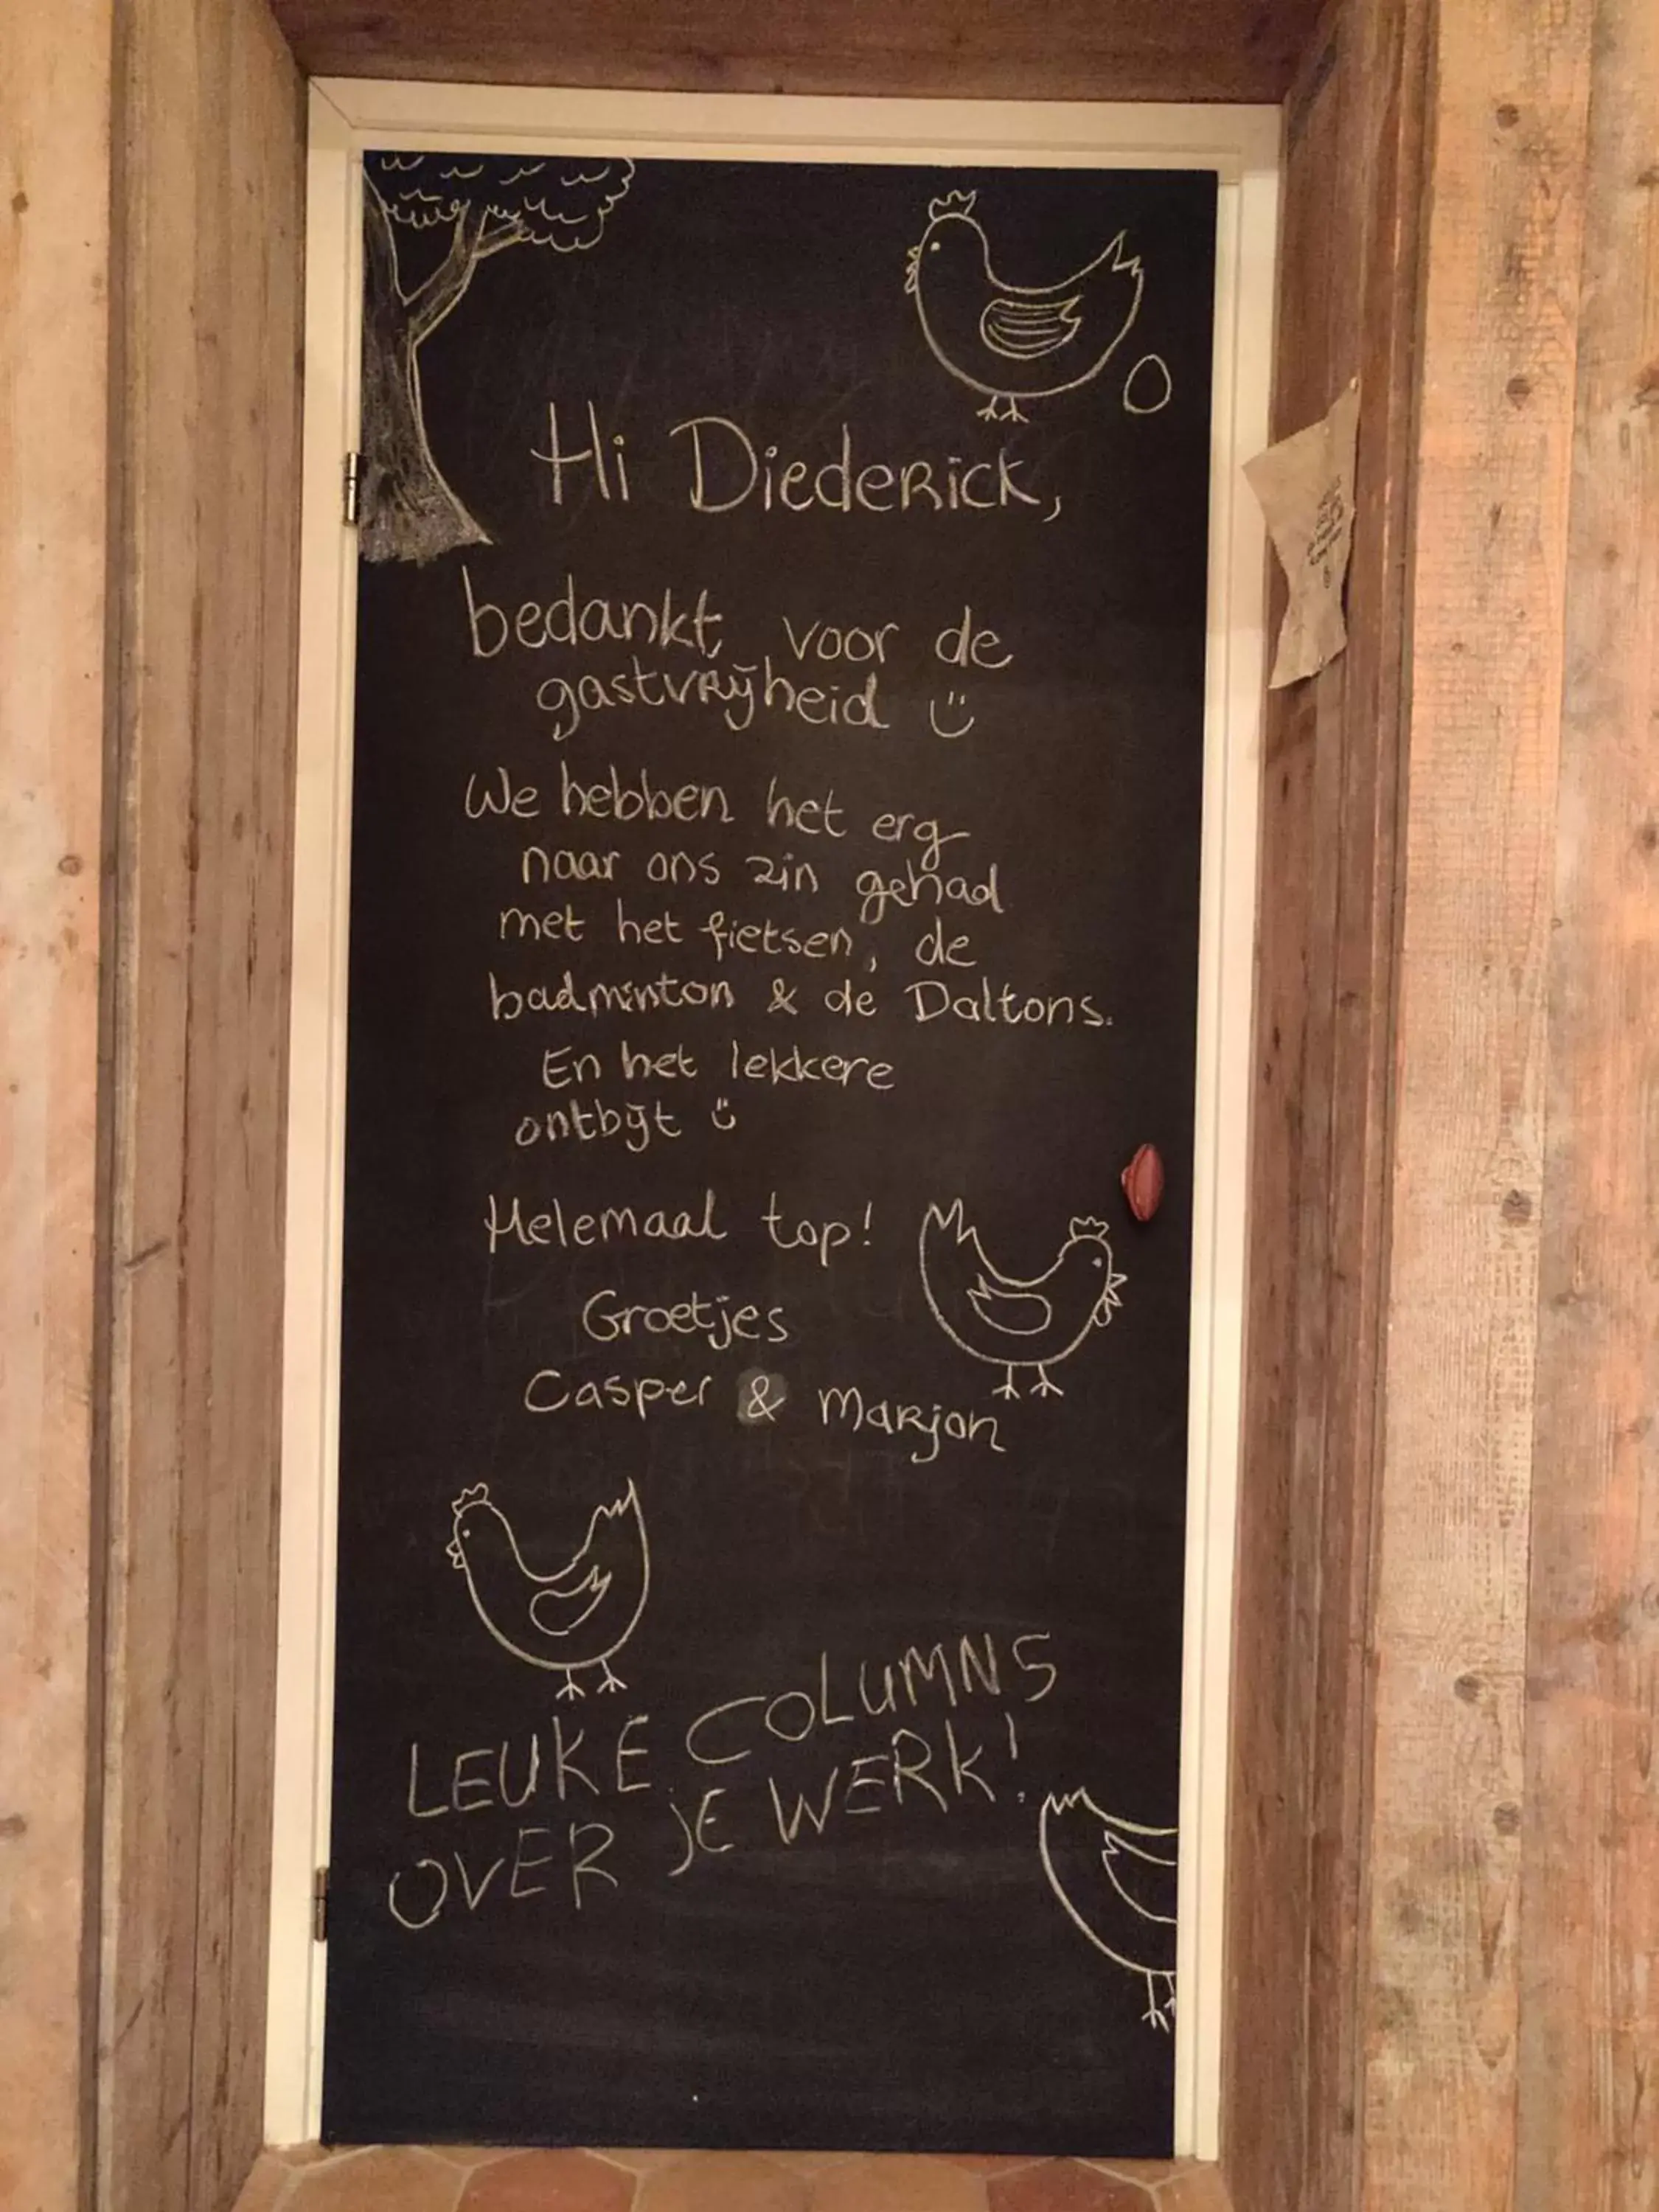 Hi Diederick,
bedankt voor de
gastvrijheid
We hebben het erg
naar ons zin gehad
met het fietsen, de
badminton & de Daltons.
En het lekkere
ontbijt
Helemaal top!
Groetjes
Casper & Marjon
LEUKE COLUMNS
OVER JE WERK!